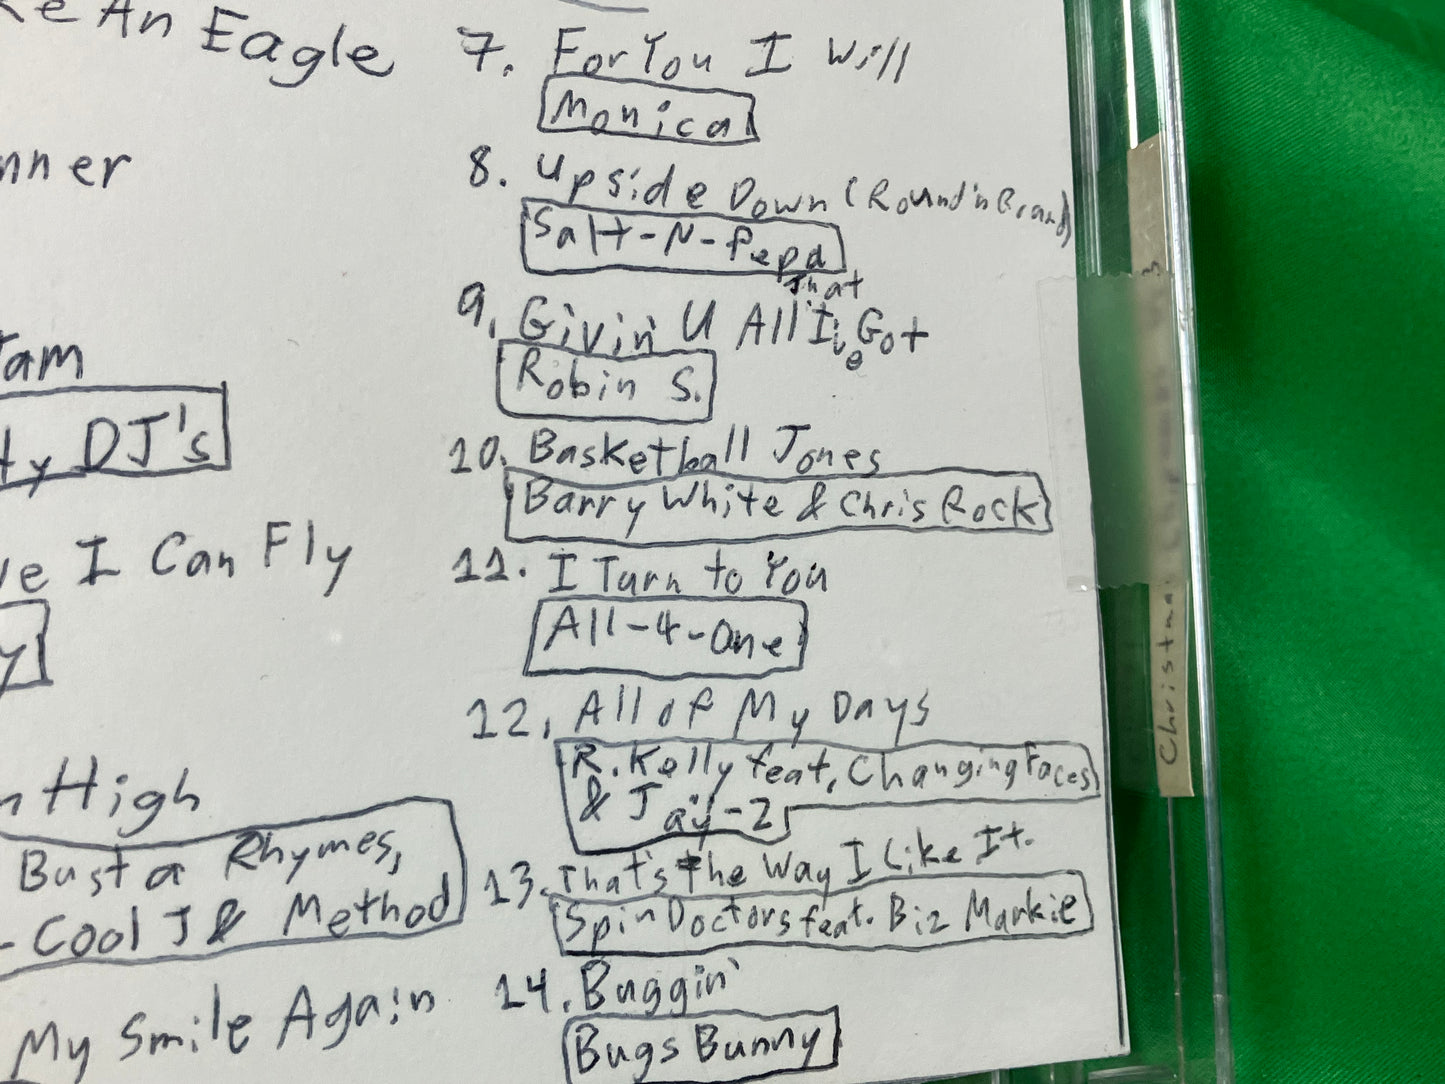 ke An Eagle
nner
Jam
ty DJ's
ve I Can Fly
y
n High
Busta Rhymes,
-Cool J & Method
My Smile Again
7. For You I Will
Monica
8. Upside Down (Round'n Broand)
Salt-N-Pepa
9. Givin' U All That I've Got
Robin S.
10. Basketball Jones
Barry White & Chris Rock
11. I Turn to You
All-4-One
12. All of My Days
R. Kelly feat. Changing Faces
& Jay-Z
13. That's The Way I Like It.
Spin Doctors feat. Biz Markie
14. Buggin'
Bugs Bunny
Christma